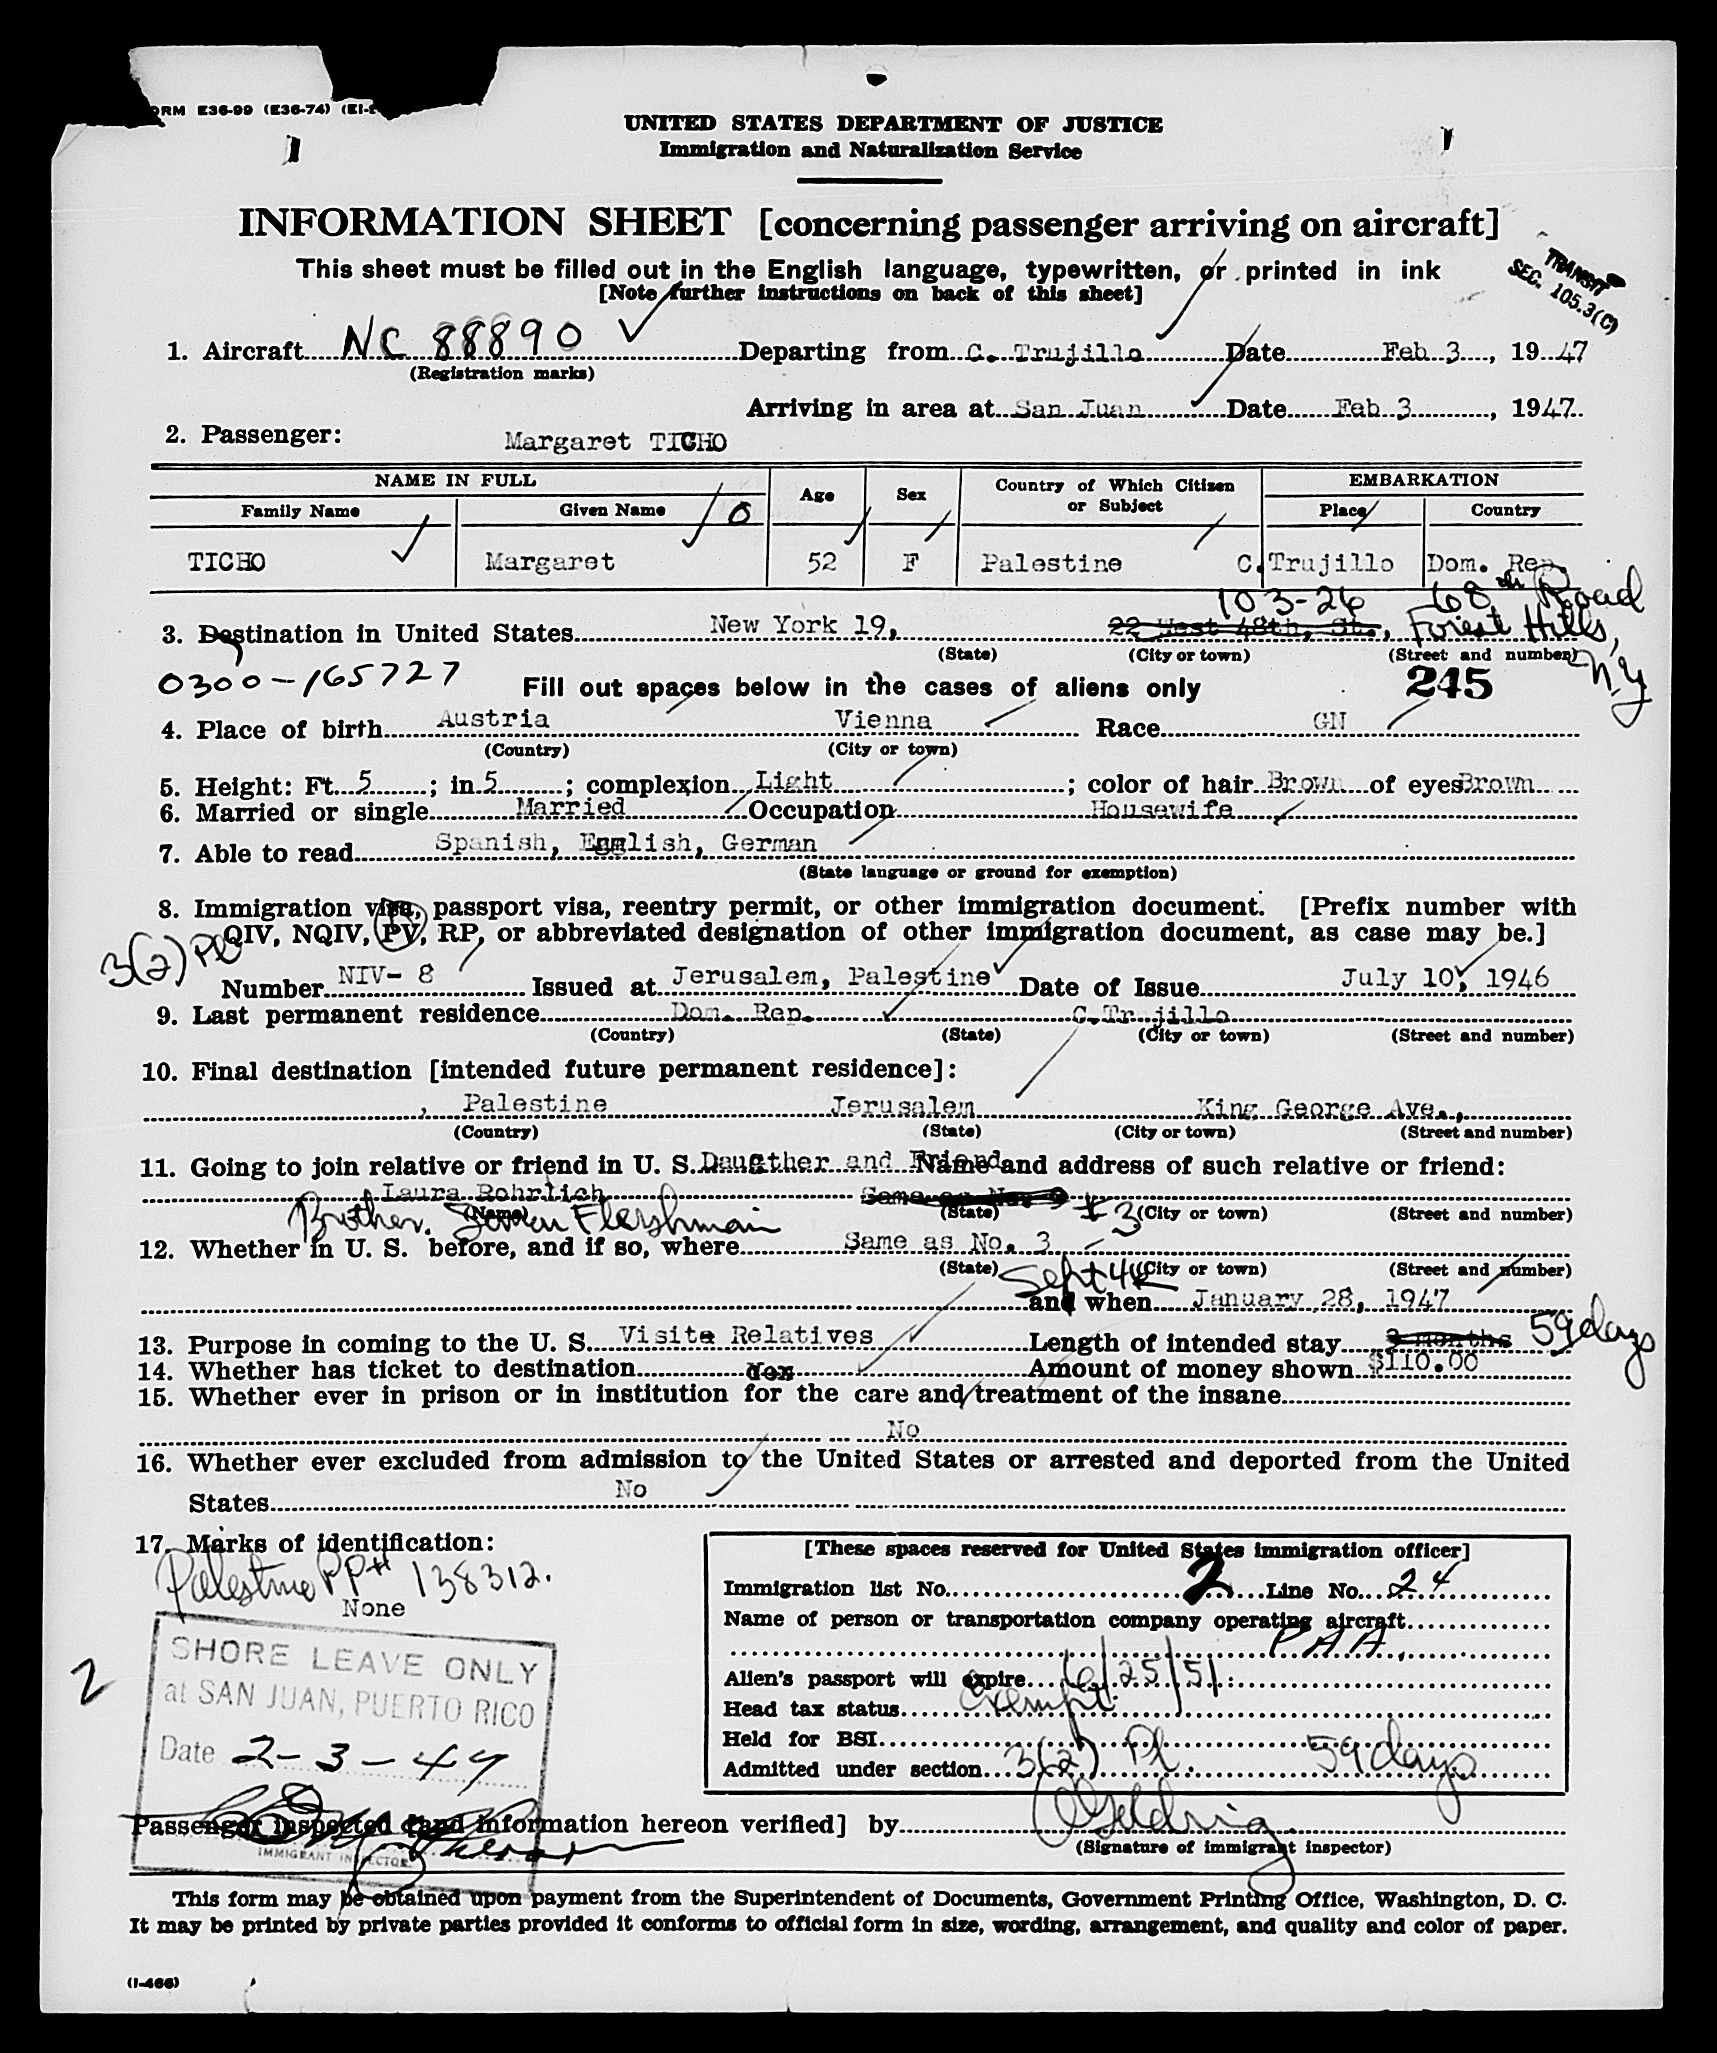 ORM E36-99 (E36-74) (EI-
UNITED STATES DEPARTMENT OF JUSTICE
Immigration and Naturalization Service
INFORMATION SHEET [concerning passenger arriving on aircraft]
This sheet must be filled out in the English language, typewritten, or printed in ink
[Note further instructions on back of this sheet]
TRANSIT
SEC. 105.3(C)
1. Aircraft NC 88890 Departing from C. Trujillo Date Feb 3, 1947
(Registration marks)
Arriving in area at San Juan Date Feb 3, 1947
2. Passenger: Margaret TICHO
NAME IN FULL Age Sex Country of Which Citizen or Subject EMBARKATION
Family Name Given Name O Place Country
TICHO Margaret 52 F Palestine C.Trujillo Dom. Rep.
103-26 68th Road
3. Destination in United States New York 19, 22 West 48th, St., Forest Hills, N.Y
(State) (City or town) (Street and number)
0300-165727 Fill out spaces below in the cases of aliens only 245
4. Place of birth Austria Vienna Race GN
(Country) (City or town)
5. Height: Ft. 5; in 5; complexion Light; color of hair Brown of eyes Brown
6. Married or single Married Occupation Housewife
7. Able to read Spanish, English, German
(State language or ground for exemption)
8. Immigration visa, passport visa, reentry permit, or other immigration document. [Prefix number with
QIV, NQIV, PV, RP, or abbreviated designation of other immigration document, as case may be.]
3(2) Pl
Number NIV- 8 Issued at Jerusalem, Palestine Date of Issue July 10, 1946
9. Last permanent residence Dom. Rep. C.Trujillo
(Country) (State) (City or town) (Street and number)
10. Final destination [intended future permanent residence]:
, Palestine Jerusalem King George Ave.,
(Country) (State) (City or town) (Street and number)
11. Going to join relative or friend in U. S. Daugther and Friend Name and address of such relative or friend:
Laura Rohrlich Same as No.
(Name) (State) # 3 (City or town) (Street and number)
Brother. Fleyshman
12. Whether in U. S. before, and if so, where Same as No. 3
(State) (City or town) (Street and number)
Sept 46
and when January 28, 1947
13. Purpose in coming to the U. S. Visite Relatives Length of intended stay 2 months 59 days
14. Whether has ticket to destination Yes Amount of money shown $110.00
15. Whether ever in prison or in institution for the care and treatment of the insane
No
16. Whether ever excluded from admission to the United States or arrested and deported from the United
States No
17. Marks of identification:
Palestine PP# 138312.
None
[These spaces reserved for United States immigration officer]
Immigration list No. 2 Line No. 24
Name of person or transportation company operating aircraft
P A A.
Alien's passport will expire 6/25/51
Head tax status exempt
Held for BSI
Admitted under section 3(2) Pl. 59 days
2
SHORE LEAVE ONLY
at SAN JUAN, PUERTO RICO
Date 2-3-47
IMMIGRANT INSPECTOR
Passenger inspected [and information hereon verified] by
(Signature of immigrant inspector)
This form may be obtained upon payment from the Superintendent of Documents, Government Printing Office, Washington, D. C.
It may be printed by private parties provided it conforms to official form in size, wording, arrangement, and quality and color of paper.
(I-466)